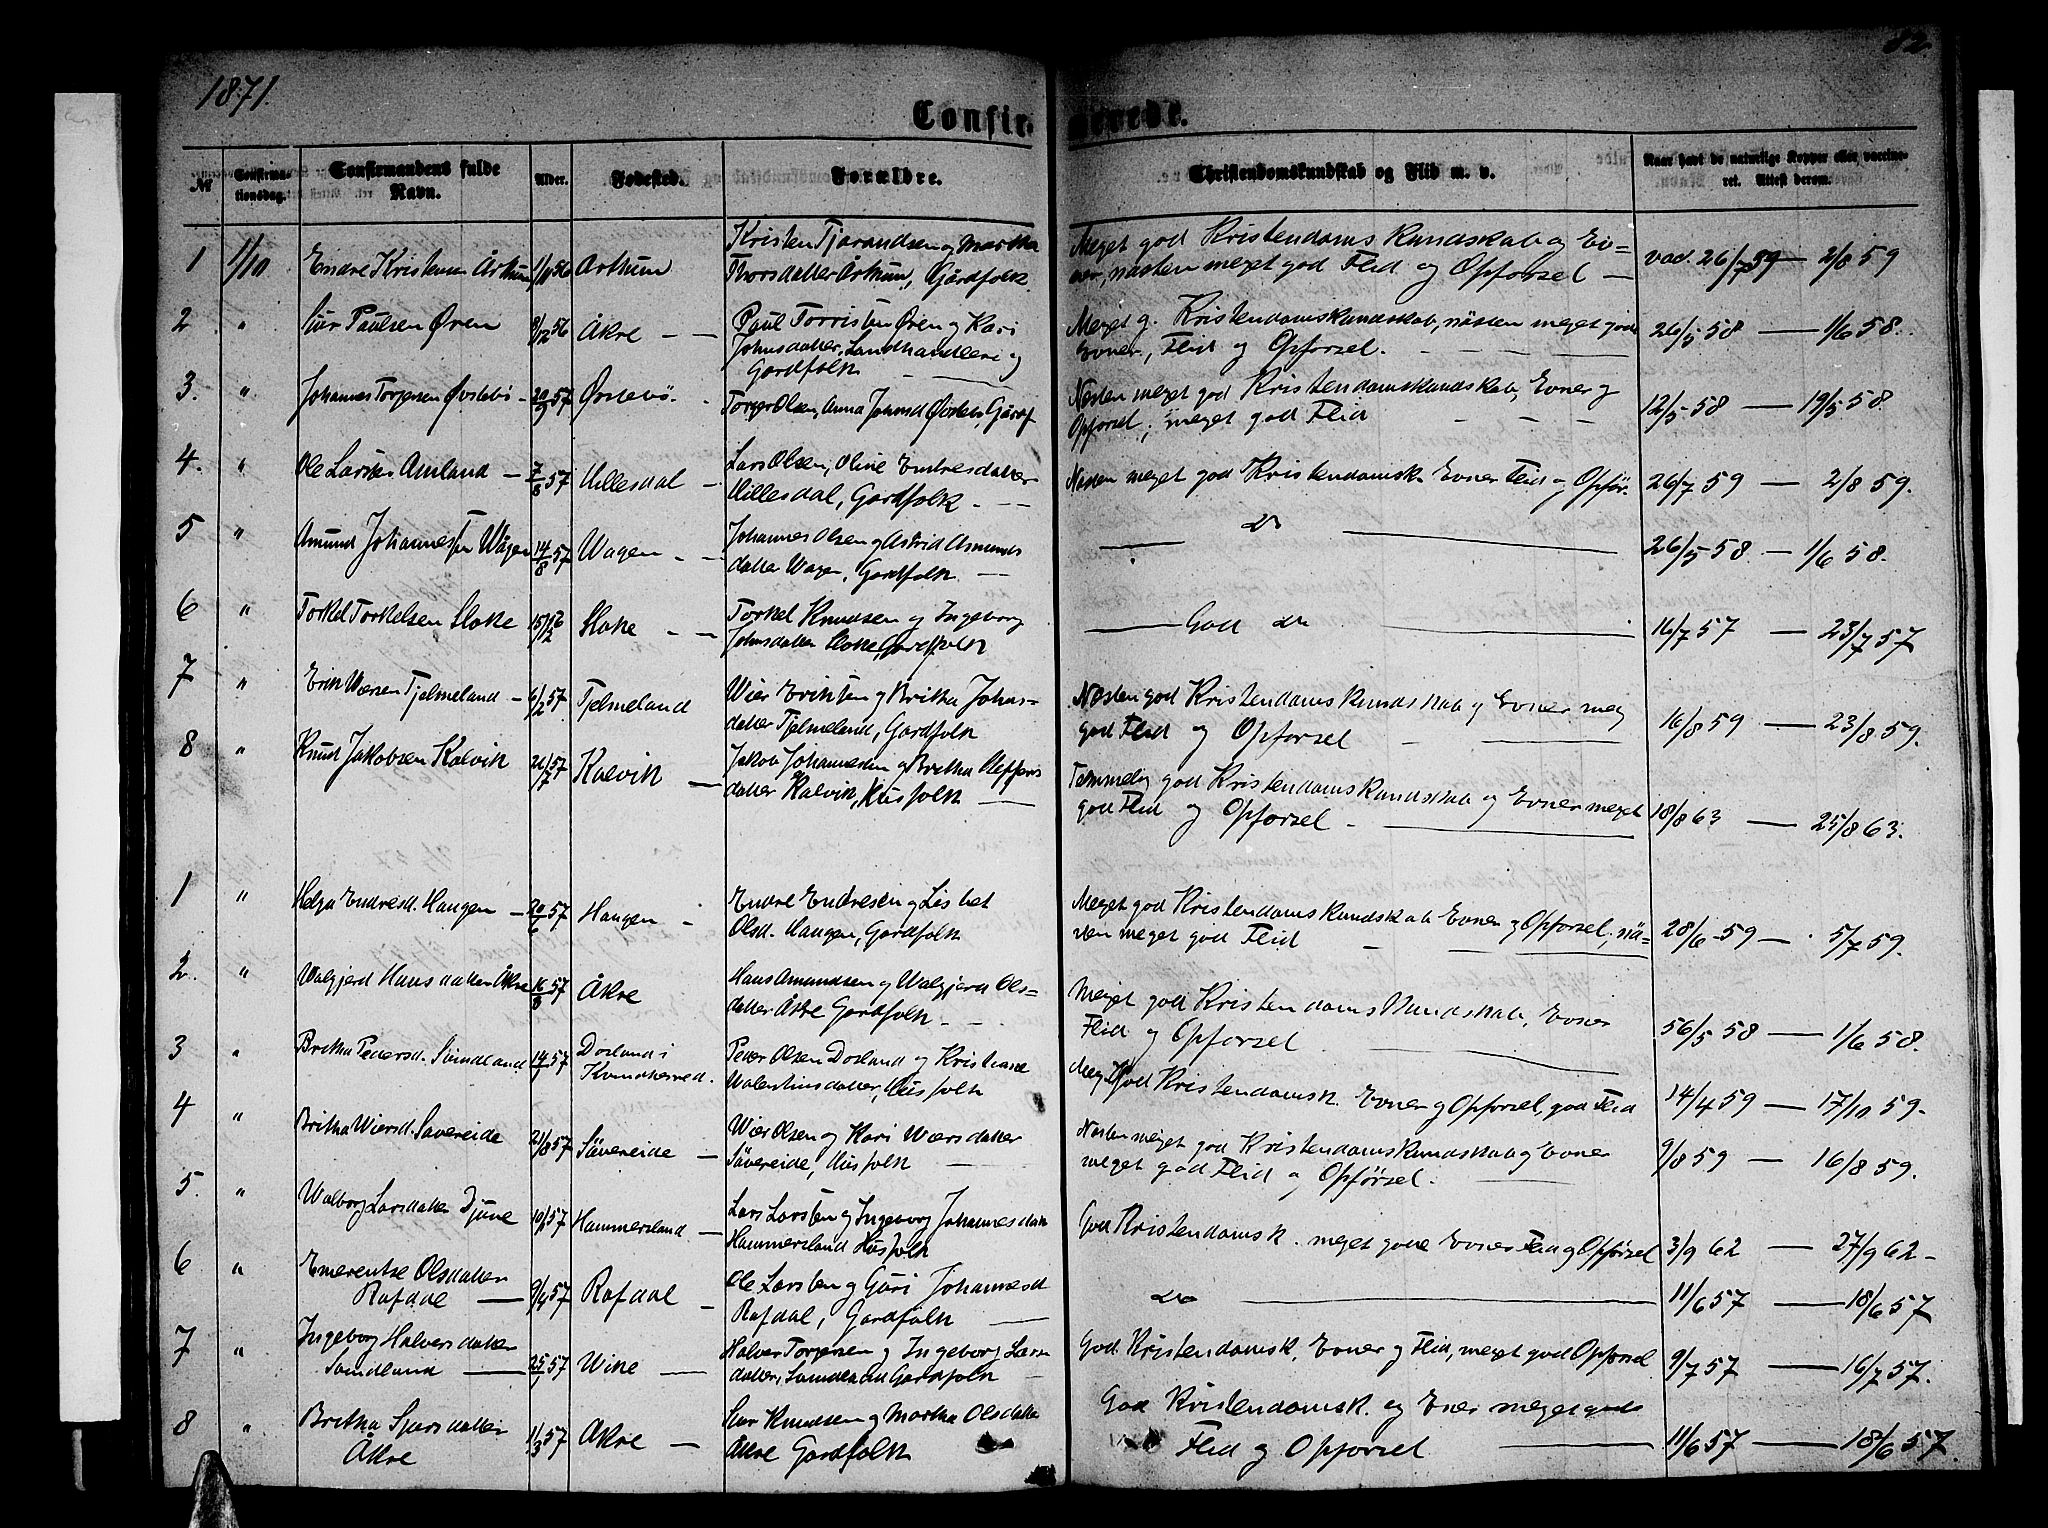 1871.
82
Confirmerede.
№ Confirmationsdag. Confirmandens fulde Navn. Alder. Fødested. Forældre. Christendomskundskab og Flid m. v. Naar havt de naturlige Kopper eller vaccineret. Attest derom.
1 1/10 Endre Kristensen Årthun 1/11 56 Arthun Kristen Tjarandsen og Martha Meget god Kristendoms Kundskab og Ev- vac. 26/7 59 — 2/8 59
Thorsdatter Årthun, Gårdfolk ner, nästen meget god Flid og Opförsel —
2 " Paulsen Øren 8/12 56 Åkre — — Paul Torrisen Øren og Kari Meget g. Kristendomskundskab, nästen meget gode 26/5 58 — 1/6 58.
Johnsdatter, Landhandlere og Evner, Flid og Opforsel. — —
Gardfolk —
3. " Johannes Torgersen Øvstebö - 20/9 57 Øvstebö. - Torger Olsen, Anna Johnsd Øvstebö, Gårdf Nästen meget god Kristendomskundskab, Evner og 12/5 58 — 19/5 58.
Opforsel; meget god Flid — —
4. " Ole Larsen Amland — 7/8 57 Hillesdal - Lars Olsen, Oline Endresdatter Nästen meget god Kristendomsk. Evner Flid og Opför. 26/7 59 — 2/8 59.
Hillesdal, Gardfolk. - —
5 " Amund Johannessen Wågen 14/8 57 Wagen - - Johannes Olsen og Astrid Asmunds — do — 26/5 58. — 1/6 58.
datter Wagen, Gardfolk. —
6 " Torkel Torkelsen Sloke 15/12 56 Sloke - - Torkel Knudsen og Ingeborg — God do — 16/7 57 — 23/7 57
Johnsdatter Sloke, Gardfolk
7 " Erik Wiersen Tjelmeland - 6/2 57 Tjelmeland Wier Eriksen og Britha Johns- Nästen god Kristendoms Kundskab og Evner meg 16/8 59 — 23/8 59.
datter Tjelmeland, Gardfolk god Flid og Opforsel - —
8 " Knud Jakobsen Kalvik 26/7 57 Kalvik — Jakob Johannesen og Britha Steffens Temmelig god Kristendoms Kundskab og Evner meget 18/8 63 — 25/8 63.
datter Kalvik, Husfolk — god Flid og Opforsel - —
1 " Helga Endresd. Haugen — 20/6 57 Haugen - Endre Endresen og Lisbet Meget god Kristendoms Kundskab Evner og Opforsel, nä- 28/6 59 — 5/7 59.
Olsd. Haugen, Gardfolk sten meget god Flid - —
2. " Walgjerd Hansdatter Åkre 16/8 57 Åkre Hans Amundsen og Walgjerd Ols- Meget god Kristendoms Kundskab, Evner 56/5 58 — 1/6 58.
datter Åkre Gardfolk - - Flid og Opforsel. —
3 " Britha Pedersd. Svindland 14/1 57 Dosland i Peder Olsen Dosland og Kristiane Meg god Kristendomsk. Evner og Opforsel, god Flid 14/4 59 — 17/10 59.
Kvindherred. Walentinsdatter, Husfolk
4 " Britha Wiersd. Sävereide 21/8 57 Sävereide — Wier Olsen og Kari Wiersdatter Nästen meget god Kristendoms Kundskab og Evner 9/8 59 — 16/8 59.
Sävereide, Husfolk — meget god Flid og Opförsel. —
5. " Walborg Larsdatter Djuve 10/1 57 Hammersland — Lars Larsen og Ingeborg Johannesdatt God Kristendomsk. meget gode Evner Flid og Opförsel 3/9 62 — 27/9 62 -
Hammersland Husfolk
6 " Emerentse Olsdatter Ole Larsen og Guri Johannesd do — 11/6 57 — 18/6 57
Rafdal — 9/4 57 Rafdal - Rafdal, Gardfolk —
7 " Ingeborg Halversdatter Halver Torgersen og Ingeborg Lars God Kristendomsk, Evner og Flid, meget god Opforsel 9/7 57 — 16/7 57.
Svindland — 25/1 57 Wike — datter, Svindland Gardfolk —
8 " Britha Sjursdatter 11/3 57 Åkre — Sjur Knudsen og Martha Olsdatter God Kristendomsk. og Evner meget gode 11/6 57 — 18/6 57.
Åkre Åkre Gardfolk Flid og Opforsel —